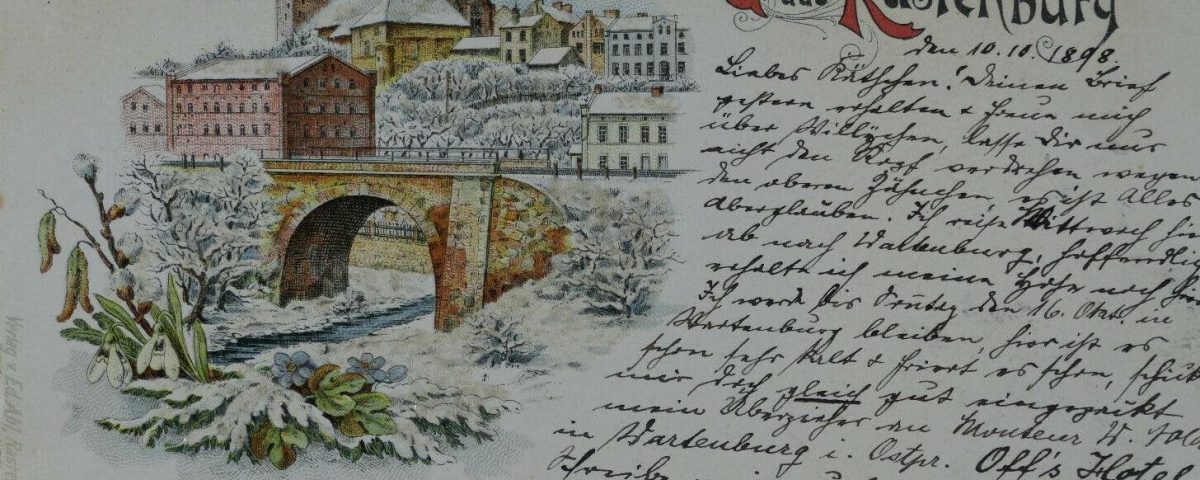 aus Rastenburg
den 10.10.1898.
Liebes Käthchen! Deinen Brief
gestern erhalten & freue mich
über Willychen, lasse Dir nur
nicht den Kopf verdrehen wegen
den oberen Zähnchen, es ist Alles
Aberglauben. Ich reise Mittwoch hier
ab nach Wartenburg, hoffendlich
erhalte ich meine Hose noch hier
Ich werde bis Sontag den 16. Okt. in
Wartenburg bleiben, hier ist es
schon sehr kalt & friert es schon, schicke
mir doch gleich gut eingepackt
mein Überzieher an Monteur W.
in Wartenburg i. Ostpr. Off's Hotel
Schreibe
Verlag v.